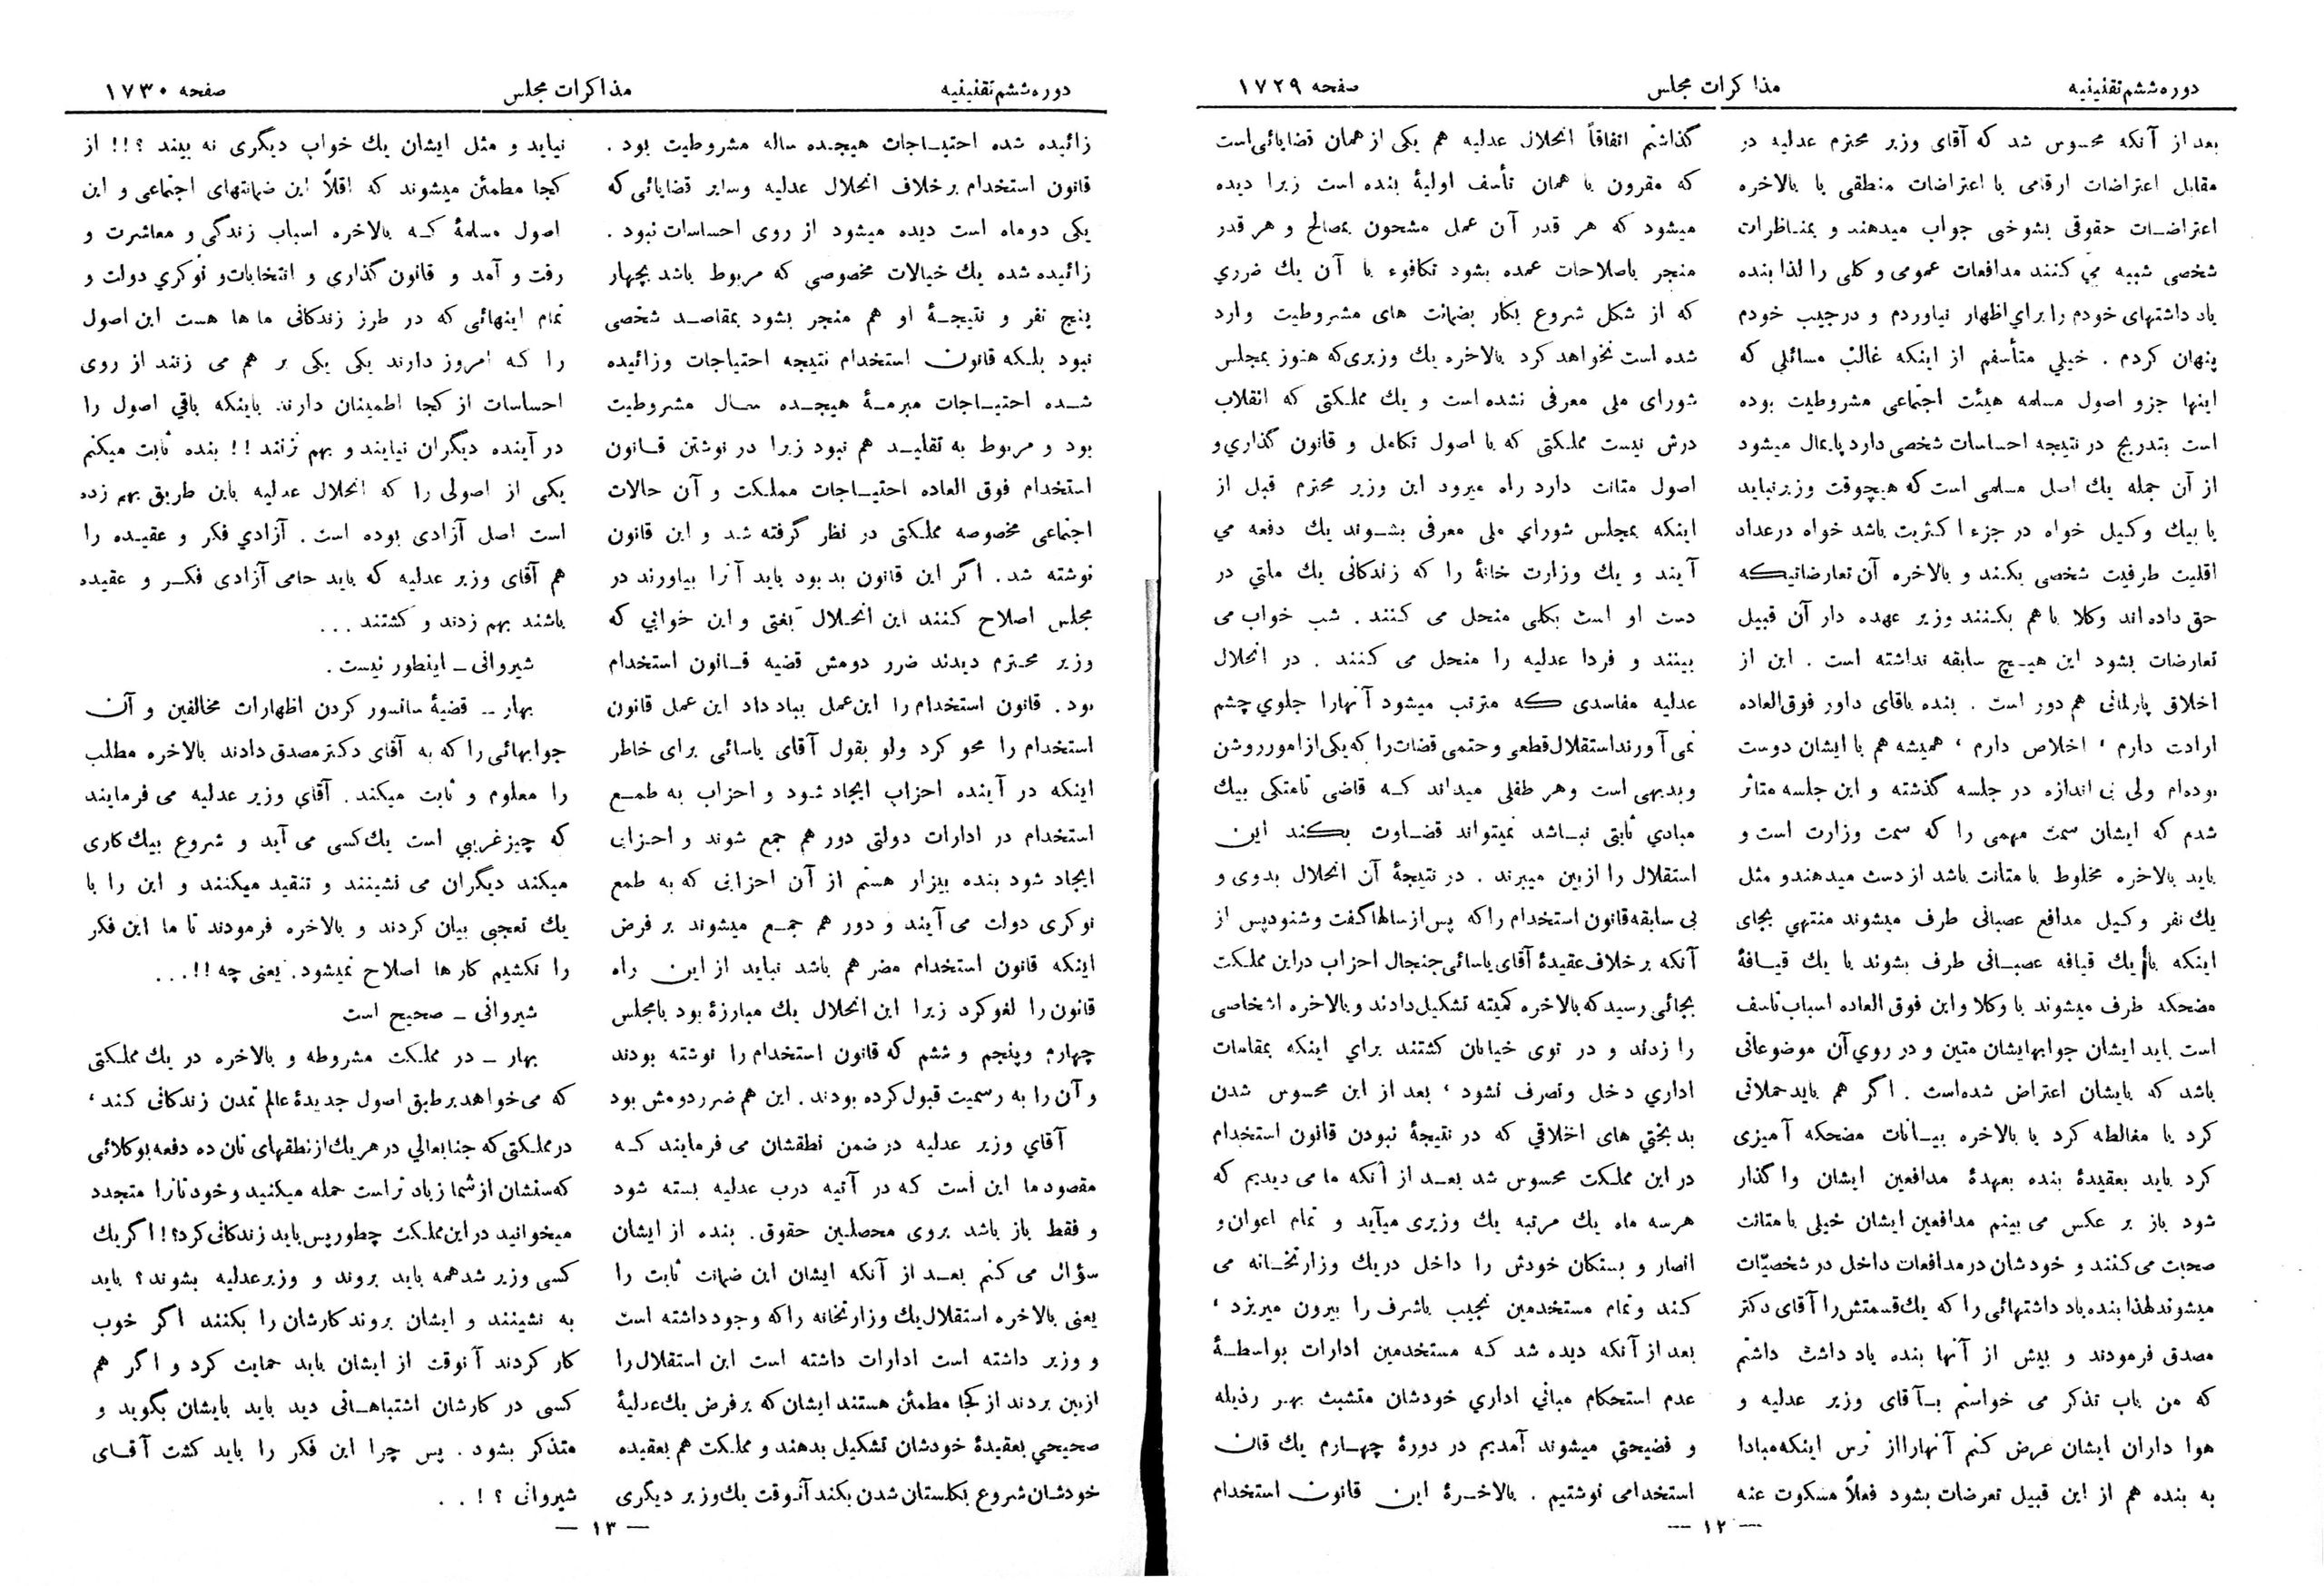 دوره ششم تقنینیه
مذاکرات مجلس
صفحه ۱۷۲۹
بعد از آنکه محسوس شد که آقای وزیر محترم عدلیه در
مقابل اعتراضات ارقامی با اعتراضات منطقی یا بالاخره
اعتراضات حقوقی بشوخی جواب میدهند و بمناظرات
شخصی شبیه می کنند مدافعات عمومی و کلی را لذا بنده
یاد داشتهای خودم را برای اظهار نیاوردم و درجیب خودم
پنهان کردم . خیلی متأسفم از اینکه غالب مسائلی که
اینها جزو اصول مسلمه هیئت اجتماعی مشروطیت بوده
است بتدریج در نتیجه احساسات شخصی دارد پایمال میشود
از آن جمله یك اصل مسلمی است که هیچوقت وزیر نباید
با بیك وکیل خواه در جزء اکثریت باشد خواه درعداد
اقلیت طرفیت شخصی بکند و بالاخره آن تعارضاتیکه
حق داده اند وکلا با هم بکنند وزیر عهده دار آن قبیل
تعارضات بشود این هیچ سابقه نداشته است . این از
اخلاق پارلمانی هم دور است . بنده باقای داور فوق العاده
ارادت دارم ، اخلاص دارم ، همیشه هم با ایشان دوست
بوده ام ولی بی اندازه در جلسه گذشته و این جلسه متاثر
شدم که ایشان سمت مهمی را که سمت وزارت است و
باید بالاخره مخلوط با متانت باشد از دست میدهندو مثل
یك نفر وکیل مدافع عصبانی طرف میشوند منتهی بجای
اینکه با یك قیافه عصبانی طرف بشوند با یك قیافهٔ
مضحکه طرف میشوند با وکلا و این فوق العاده اسباب تاسف
است باید ایشان جوابهایشان متین و در روی آن موضوعاتی
باشد که بایشان اعتراض شده است . اگر هم باید حملاتی
کرد یا مغالطه کرد یا بالاخره بیانات مضحکه آمیزی
کرد باید بعقیدهٔ بنده بعهدهٔ مدافعین ایشان واگذار
شود باز بر عکس می بینم مدافعین ایشان خیلی با متانت
صحبت می کنند و خودشان در مدافعات داخل در شخصیّات
میشوند لهذا بنده یاد داشتهائی را که یك قسمتش را آقای دکتر
مصدق فرمودند و بیش از آنها بنده یاد داشت داشتم
که من باب تذکر می خواستم بآقای وزیر عدلیه و
هوا داران ایشان عرض کنم آنهارااز ترس اینکه مبادا
به بنده هم از این قبیل تعرضات بشود فعلاً مسکوت عنه
گذاشتم اتفاقاً انحلال عدلیه هم یکی از همان قضایائی است
که مقرون با همان تأسف اولیهٔ بنده است زیرا دیده
میشود که هر قدر آن عمل مشحون بمصالح و هر قدر
منجر باصلاحات عمده بشود تکافوء با آن یك ضرری
که از شکل شروع بکار بضمانت های مشروطیت وارد
شده است نخواهد کرد بالاخره یك وزیری که هنوز بمجلس
شورای ملی معرفی نشده است و یك مملکتی که انقلاب
درش نیست مملکتی که با اصول تکامل و قانون گذاری و
اصول متانت دارد راه میرود این وزیر محترم قبل از
اینکه بمجلس شورای ملی معرفی بشوند یك دفعه می
آیند و یك وزارت خانهٔ را که زندکانی یك ملتی در
دست او است بکلی منحل می کنند . شب خواب می
بینند و فردا عدلیه را منحل می کنند . در انحلال
عدلیه مفاسدی که مترتب میشود آنهارا جلوی چشم
نمی آورند استقلال قطعی و حتمی قضات را که یکی از امور روشن
و بدیهی است وهر طفلی میداند که قاضی تا متکی بیك
مبادی ثابتی نباشد نمیتواند قضاوت بکند این
استقلال را از بین میبرند . در نتیجهٔ آن انحلال بدوی و
بی سابقه قانون استخدام را که پس از سالها گفت و شنود پس از
آنکه برخلاف عقیدهٔ آقای یاسائی جنجال احزاب دراین مملکت
بجائی رسید که بالاخره کمیته تشکیل دادند و بالاخره اشخاصی
را زدند و در توی خیابان کشتند برای اینکه بمقامات
اداری دخل و تصرف نشود ، بعد از این محسوس شدن
بدبختی های اخلاقی که در نتیجهٔ نبودن قانون استخدام
در این مملکت محسوس شد بعد از آنکه ما می دیدیم که
هر سه ماه یك مرتبه یك وزیری میآید و تمام اعوان و
انصار و بستکان خودش را داخل در یك وزارتخانه می
کند و تمام مستخدمین نجیب باشرف را بیرون میریزد ،
بعد از آنکه دیده شد که مستخدمین ادارات بواسطهٔ
عدم استحکام مبانی اداری خودشان متشبث بهر رذیله
و فضیحتی میشوند آمدیم در دورهٔ چهارم یك قانون
استخدامی نوشتیم . بالاخره این قانون استخدام
— ۱۲ —
دوره ششم تقنینیه
مذاکرات مجلس
صفحه ۱۷۳۰
زائیده شده احتیاجات هیجده ساله مشروطیت بود .
قانون استخدام برخلاف انحلال عدلیه وسایر قضایائی که
یکی دوماه است دیده میشود از روی احساسات نبود .
زائیده شده یك خیالات مخصوصی که مربوط باشد بچهار
پنج نفر و نتیجهٔ او هم منجر بشود بمقاصد شخصی
نبود بلکه قانون استخدام نتیجه احتیاجات وزائیده
شده احتیاجات مبرمهٔ هیجده سال مشروطیت
بود و مربوط به تقلید هم نبود زیرا در نوشتن قانون
استخدام فوق العاده احتیاجات مملکت و آن حالات
اجتماعی مخصوصه مملکتی در نظر گرفته شد و این قانون
نوشته شد . اگر این قانون بد بود باید آنرا بیاورند در
مجلس اصلاح کنند این انحلال بغتی و این خوابی که
وزیر محترم دیدند ضرر دومش قضیه قانون استخدام
بود . قانون استخدام را این عمل بباد داد این عمل قانون
استخدام را محو کرد ولو بقول آقای یاسائی برای خاطر
اینکه در آینده احزاب ایجاد شود و احزاب به طمع
استخدام در ادارات دولتی دور هم جمع شوند و احزابی
ایجاد شود بنده بیزار هستم از آن احزابی که به طمع
نوکری دولت می آیند و دور هم جمع میشوند بر فرض
اینکه قانون استخدام مضر هم باشد نباید از این راه
قانون را لغو کرد زیرا این انحلال یك مبارزهٔ بود بامجلس
چهارم وپنجم و ششم که قانون استخدام را نوشته بودند
و آن را به رسمیت قبول کرده بودند . این هم ضرر دومش بود
آقای وزیر عدلیه در ضمن نطقشان می فرمایند که
مقصود ما این است که در آتیه درب عدلیه بسته شود
و فقط باز باشد بروی محصلین حقوق . بنده از ایشان
سؤال می کنم بعد از آنکه ایشان این ضمانت ثابت را
یعنی بالاخره استقلال یك وزارتخانه را که وجود داشته است
و وزیر داشته است ادارات داشته است این استقلال را
از بین بردند از کجا مطمئن هستند ایشان که بر فرض یك عدلیهٔ
صحیحی بعقیدهٔ خودشان تشکیل بدهند و مملکت هم بعقیده
خودشان شروع بکلستان شدن بکند آنوقت یك وزیر دیگری
نیاید و مثل ایشان یك خواب دیگری نه بیند ؟!! از
کجا مطمئن میشوند که اقلاً این ضمانتهای اجتماعی و این
اصول مسلمهٔ که بالاخره اسباب زندگی و معاشرت و
رفت و آمد و قانون گذاری و انتخابات و نوکری دولت و
تمام اینهائی که در طرز زندکانی ما ها هست این اصول
را که امروز دارند یکی یکی بر هم می زنند از روی
احساسات از کجا اطمینان دارند باینکه باقی اصول را
در آینده دیگران نیایند و بهم نزنند !! بنده ثابت میکنم
یکی از اصولی را که انحلال عدلیه باین طریق بهم زده
است اصل آزادی بوده است . آزادی فکر و عقیده را
هم آقای وزیر عدلیه که باید حامی آزادی فکر و عقیده
باشند بهم زدند و کشتند ...
شیروانی ــ اینطور نیست .
بهار ــ قضیهٔ سانسور کردن اظهارات مخالفین و آن
جوابهائی را که به آقای دکتر مصدق دادند بالاخره مطلب
را معلوم و ثابت میکند . آقای وزیر عدلیه می فرمایند
که چیز غریبی است یك کسی می آید و شروع بیك کاری
میکند دیگران می نشینند و تنقید میکنند و این را با
یك تعجبی بیان کردند و بالاخره فرمودند تا ما این فکر
را نکشیم کار ها اصلاح نمیشود . یعنی چه !!...
شیروانی ــ صحیح است
بهار ــ در مملکت مشروطه و بالاخره در یك مملکتی
که می خواهد بر طبق اصول جدیدهٔ عالم تمدن زندکانی کند ،
در مملکتی که جنابعالی در هر یك از نطقهای تان ده دفعه بوکلائی
که سنشان از شما زیاد تر است حمله میکنید و خودتانرا متجدد
میخوانید در این مملکت چطور پس باید زندکانی کرد؟! اگر یك
کسی وزیر شد همه باید بروند و وزیر عدلیه بشوند ؟ باید
به نشینند و ایشان بروند کارشان را بکنند اگر خوب
کار کردند آنوقت از ایشان باید حمایت کرد و اگر هم
کسی در کارشان اشتباهاتی دید باید بایشان بگوید و
متذکر بشود . پس چرا این فکر را باید کشت آقای
شیروانی ؟! ..
— ۱۳ —